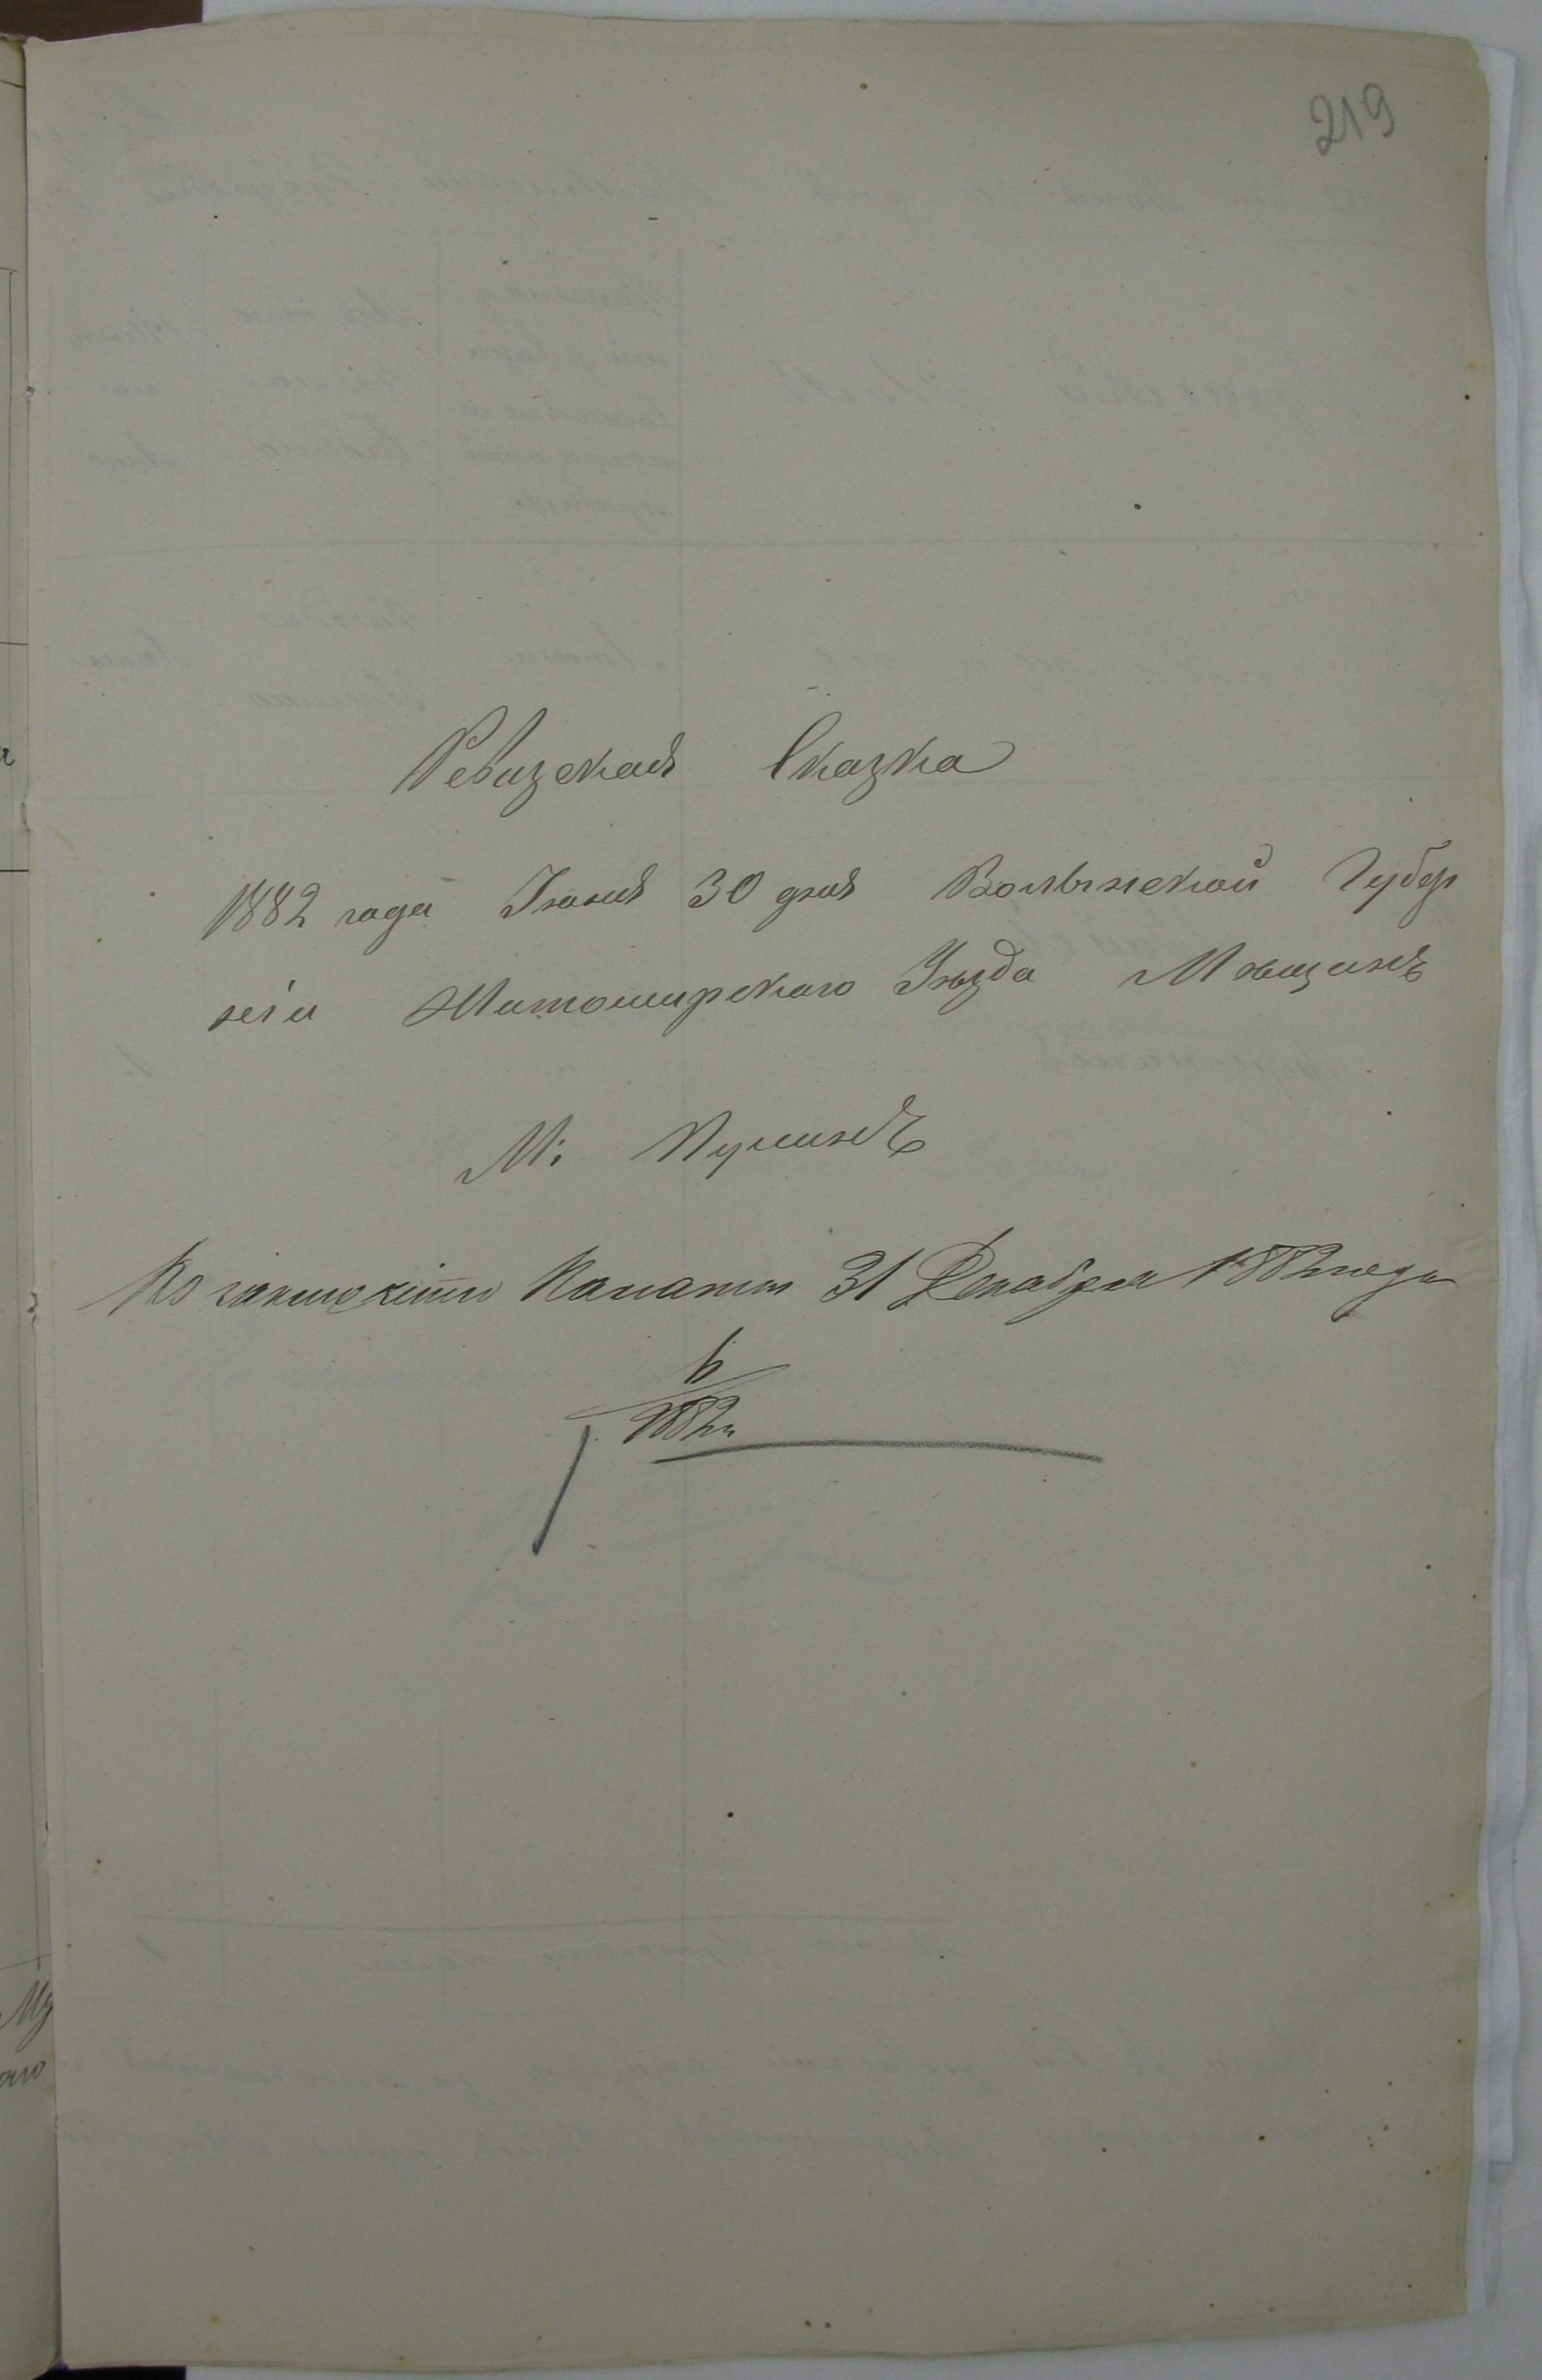 219
Ревизская Сказка
1882 года Іюня 30 дня Волынской Губер
ніи Житомирскаго Уѣзда Мѣщанъ
М. Кулинъ
По заключенію Палаты 31 Декабря 1882 года
6
1882